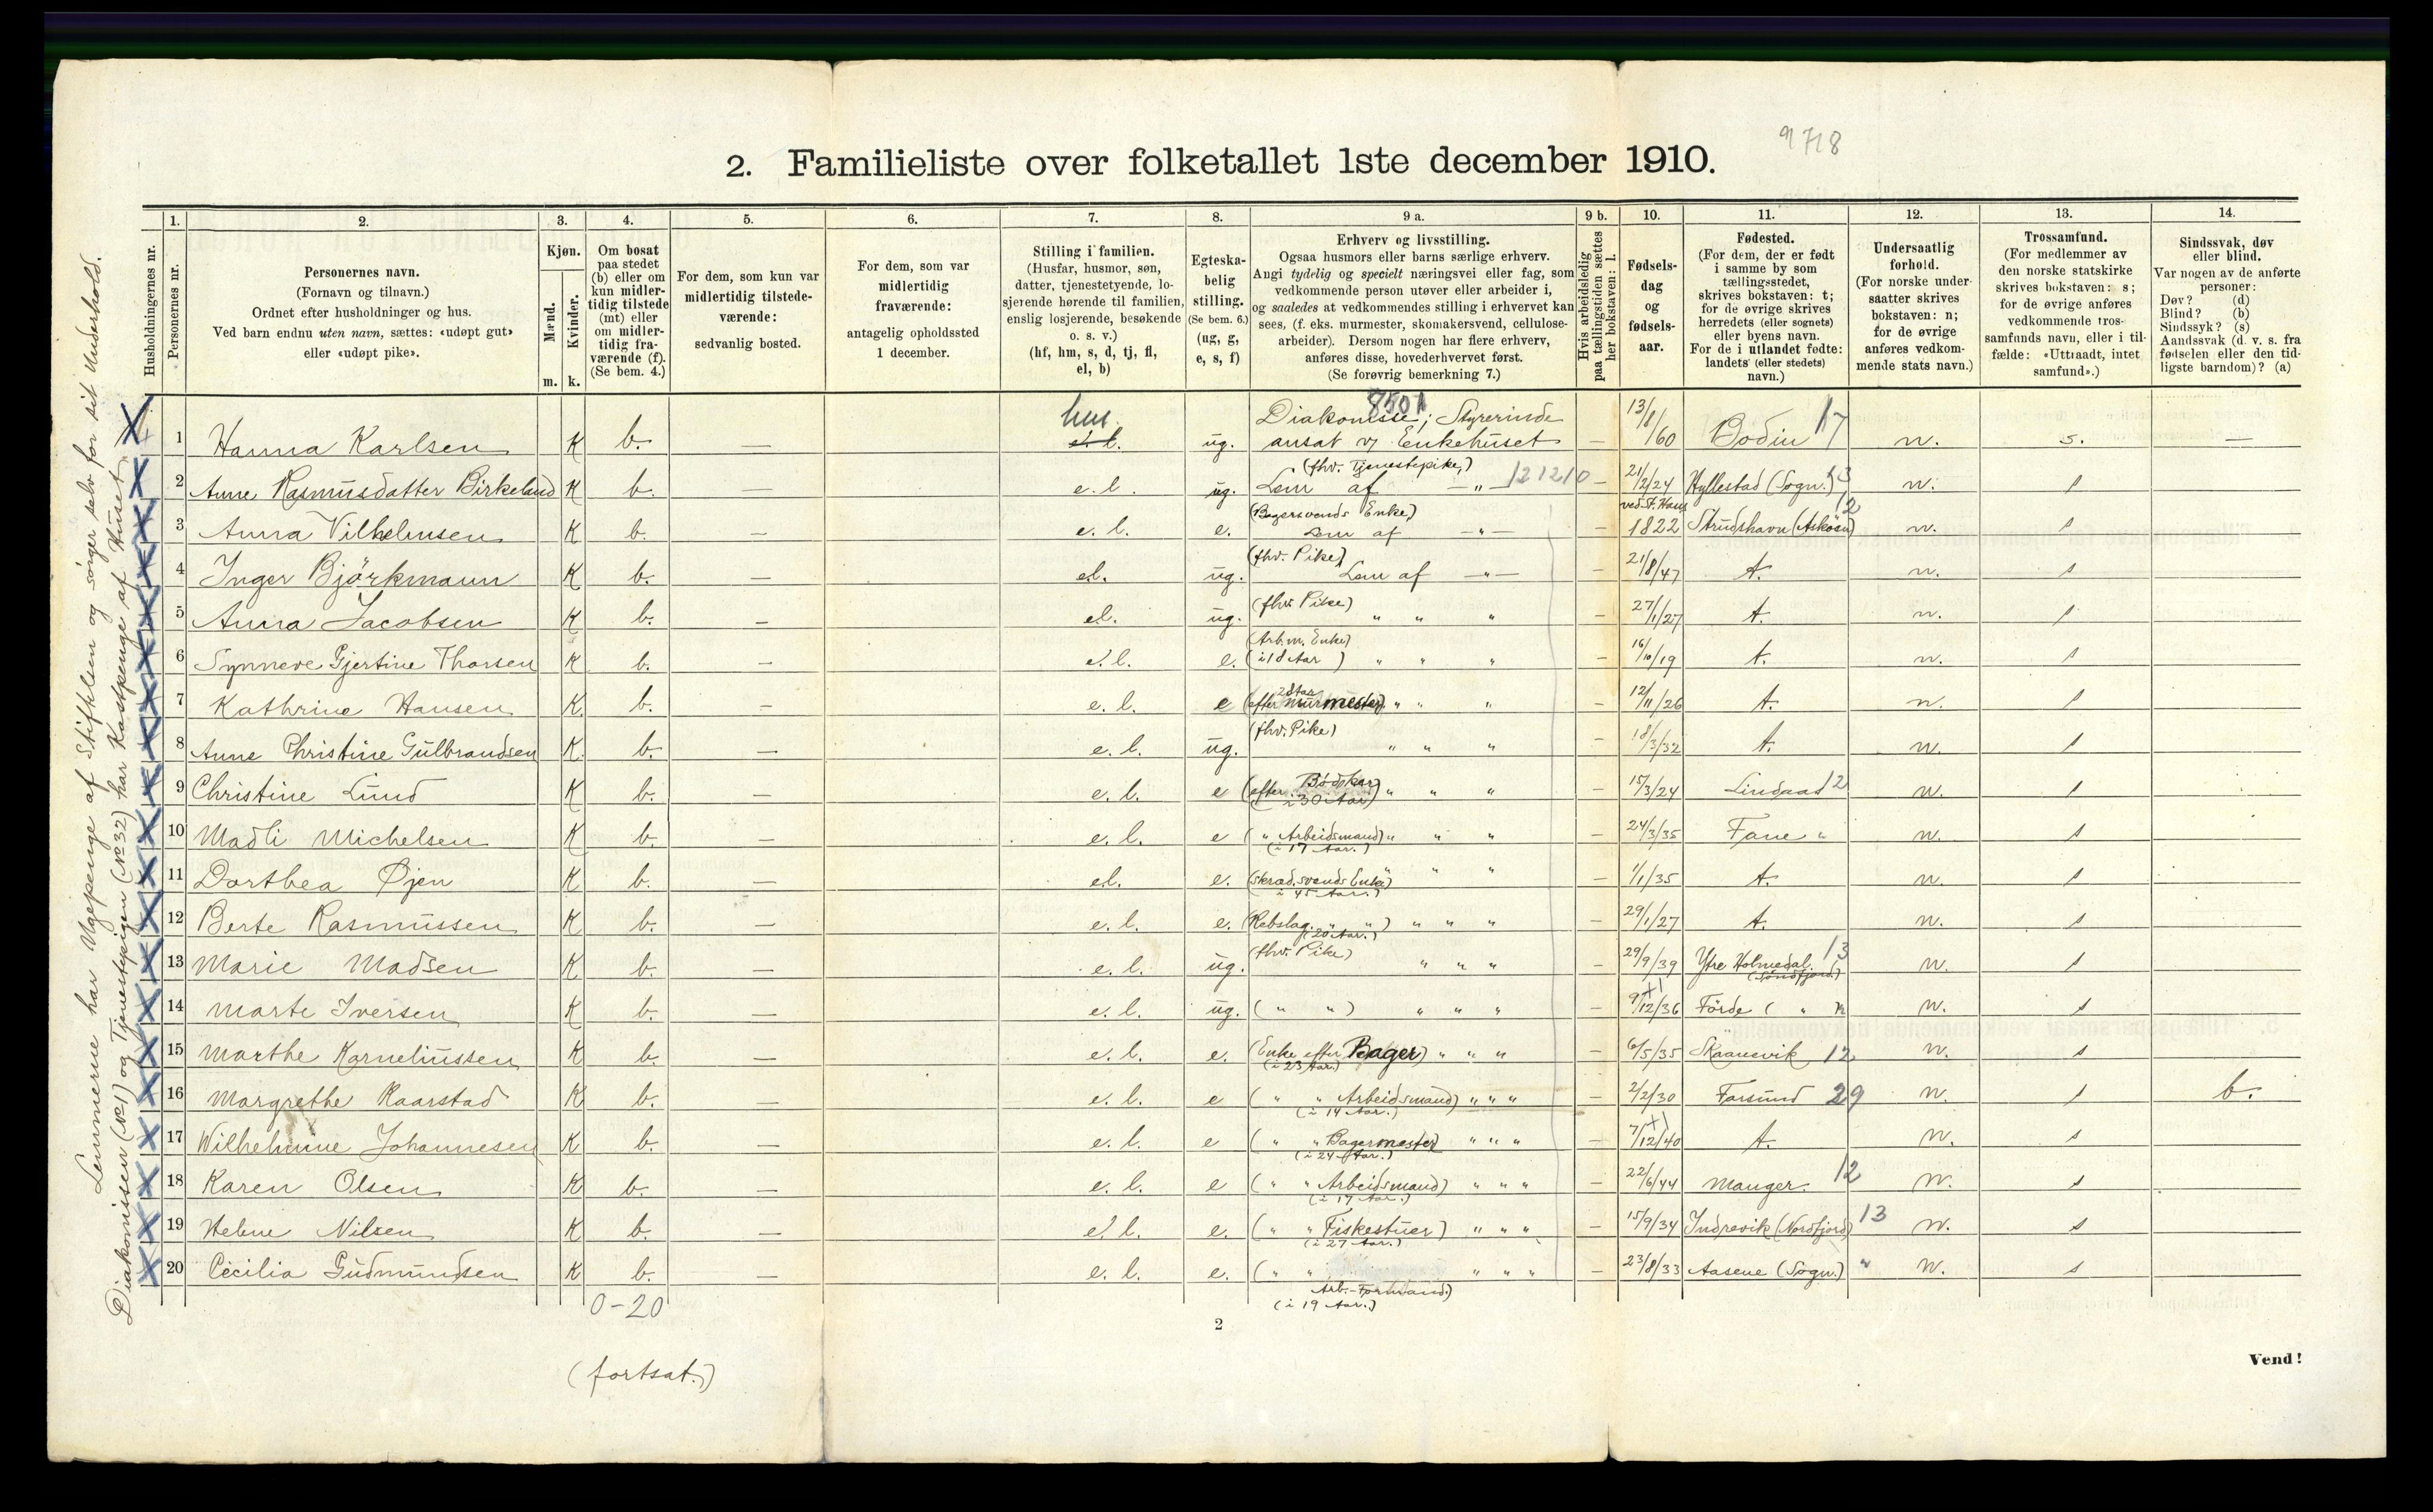 9718
2. Familieliste over folketallet 1ste december 1910.
Husholdningernes nr.
1. Personernes nr.
2. Personernes navn. (Fornavn og tilnavn.) Ordnet efter husholdninger og hus. Ved barn endnu uten navn, sættes: «udøpt gut» eller «udøpt pike».
3. Kjøn. Mænd. m. Kvinder. k.
4. Om bosat paa stedet (b) eller om kun midlertidig tilstede (mt) eller om midlertidig fraværende (f). (Se bem. 4.)
5. For dem, som kun var midlertidig tilstedeværende: sedvanlig bosted.
6. For dem, som var midlertidig fraværende: antagelig opholdssted 1 december.
7. Stilling i familien. (Husfar, husmor, søn, datter, tjenestetyende, losjerende hørende til familien, enslig losjerende, besøkende o. s. v.) (hf, hm, s, d, tj, fl, el, b)
8. Egteskabelig stilling. (Se bem. 6.) (ug, g, e, s, f)
9 a. Erhverv og livsstilling. Ogsaa husmors eller barns særlige erhverv. Angi tydelig og specielt næringsvei eller fag, som vedkommende person utøver eller arbeider i, og saaledes at vedkommendes stilling i erhvervet kan sees, (f. eks. murmester, skomakersvend, cellulosearbeider). Dersom nogen har flere erhverv, anføres disse, hovederhvervet først. (Se forøvrig bemerkning 7.)
9 b. Hvis arbeidsledig paa tællingstiden sættes her bokstaven: l.
10. Fødselsdag og fødselsaar.
11. Fødested. (For dem, der er født i samme by som tællingsstedet, skrives bokstaven: t; for de øvrige skrives herredets (eller sognets) eller byens navn. For de i utlandet fødte: landets (eller stedets) navn.)
12. Undersaatlig forhold. (For norske undersaatter skrives bokstaven: n; for de øvrige anføres vedkommende stats navn.)
13. Trossamfund. (For medlemmer av den norske statskirke skrives bokstaven: s; for de øvrige anføres vedkommende trossamfunds navn, eller i tilfælde: «Uttraadt, intet samfund».)
14. Sindssvak, døv eller blind. Var nogen av de anførte personer: Døv? (d) Blind? (b) Sindssyk? (s) Aandssvak (d. v. s. fra fødselen eller den tidligste barndom)? (a)
Lemmerne har Ugepenge af Stiftelsen og sörger selv for sit Underhold.
Diakonissen (№1) og Tjenestepigen (№32) har Kostpenge af Huset.
1 Hanna Karlsen K b. — hus e. l. ug. Diakonisse; Styrerinde ansat v/ Enkehuset 8501 — 13/8/60 Bodin 17 n. s. —
2 Anne Rasmusdatter Birkeland K b. — e. l. ug. (fhv. Tjenestepike,) Lem af —"— 121210 — 21/2/24 Hyllestad (Sogn.) 13 n. s
3 Anna Vilhelmsen K b. — e. l. e. (Bagersvends Enke) Lem af —"— — ved St. Hans 1822 Strudshavn (Asköen) 12 n. s
4 Inger Björkmann K b. — el. ug. (fhv. Pike) Lem af —"— — 21/8/47 t. n. s
5 Anna Jacobsen K b. — el. ug. (fhv. Pike) " " " — 27/1/27 t. n. s
6 Synneve Gjertine Thorsen K b. — e. l. e. (Arb.m. Enke) (i 18 Aar) " " " — 16/10/19 t. n. s
7 Kathrine Hansen K. b. — e. l. e (efter Murmester) 28 Aar " " " — 12/11/26 t. n. s
8 Anne Christine Gulbrandsen K. b. — e. l. ug. (fhv. Pike) " " " — 18/3/32 t. n. s
9 Christine Lund K b. — e. l. e (efter Bödsker) (i 30 Aar) " " " — 15/3/24 Lindaas 12 n. s
10 Madli Michelsen K b. — e. l. e (" Arbeidsmand) " " " (i 17 Aar.) — 24/3/35 Fane " n. s
11 Dorthea Øjen K b. — el. e. (Skræd.svends Enke) " " " (i 45 Aar.) — 1/1/35 t. n. s
12 Berte Rasmussen K b. — e. l. e. (Rebslag. " ") " " " (20 Aar.) — 29/1/27 t. n. s
13 Marie Madsen K b. — e. l. ug. (fhv. Pike) " " " — 29/9/39 Ytre Holmedal (Söndfjord.) 13 n. s
14 Marte Iversen K b. — e. l. ug. (" ") " " " — 9/12/36 Förde ( " n. s
15 Marthe Korneliussen K b. — e. l. e. (Enke efter Bager) " " " (i 23 Aar.) — 6/5/35 Skaanevik 12 n. s
16 Margrethe Raarstad K b. — e. l. e (" " Arbeidsmand) " " " (i 14 Aar.) — 2/2/30 Farsund 29 n. s b.
17 Wilhelmine Johannesen K b. — e. l. e (" " Bagermester) " " " (i 24 Aar.) — 7/12/40 t. n. s
18 Karen Olsen K b. — e. l. e (" " Arbeidsmand) " " " (i 17 Aar.) — 22/6/44 Manger. 12 n. s
19 Helene Nilsen K b. — e. l. e. (" " Fiskestuer) " " " (i 27 Aar.) — 15/9/34 Indrevik (Nordfjord) 13 n. s
20 Cecilia Gudmundsen K b. — e. l. e. (" " Arb.-Formand.) " " " (i 19 Aar.) — 23/8/33 Aasene (Sogn.) " n. s
0-20
2
(fortsat.)
Vend!